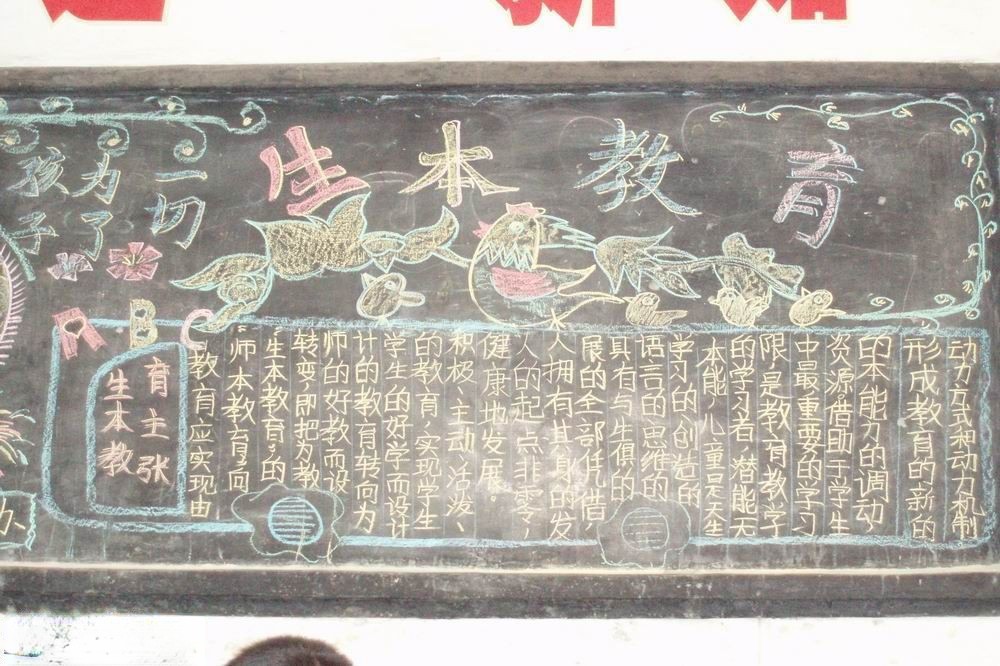 生本教育
一切
为了
孩子
A B C
生本教
育主张
教育应实现由
师本教育”向
“生本教育”的
转变,即把为教
师的好教而设
计的教育转向为
学生的好学而设计
的教育,实现学生
积极、主动、活泼、
健康地发展。
人的起点非零,
人拥有其身的发
展的全部凭借,
具有与生俱的
语言的思维的
学习的创造的
本能,儿童是天生
的学习者,潜能无
限是教育教学
中最重要的学习
资源。借助于学生
的本能力的调动
形成教育的新的
动力方式和动力机制
办